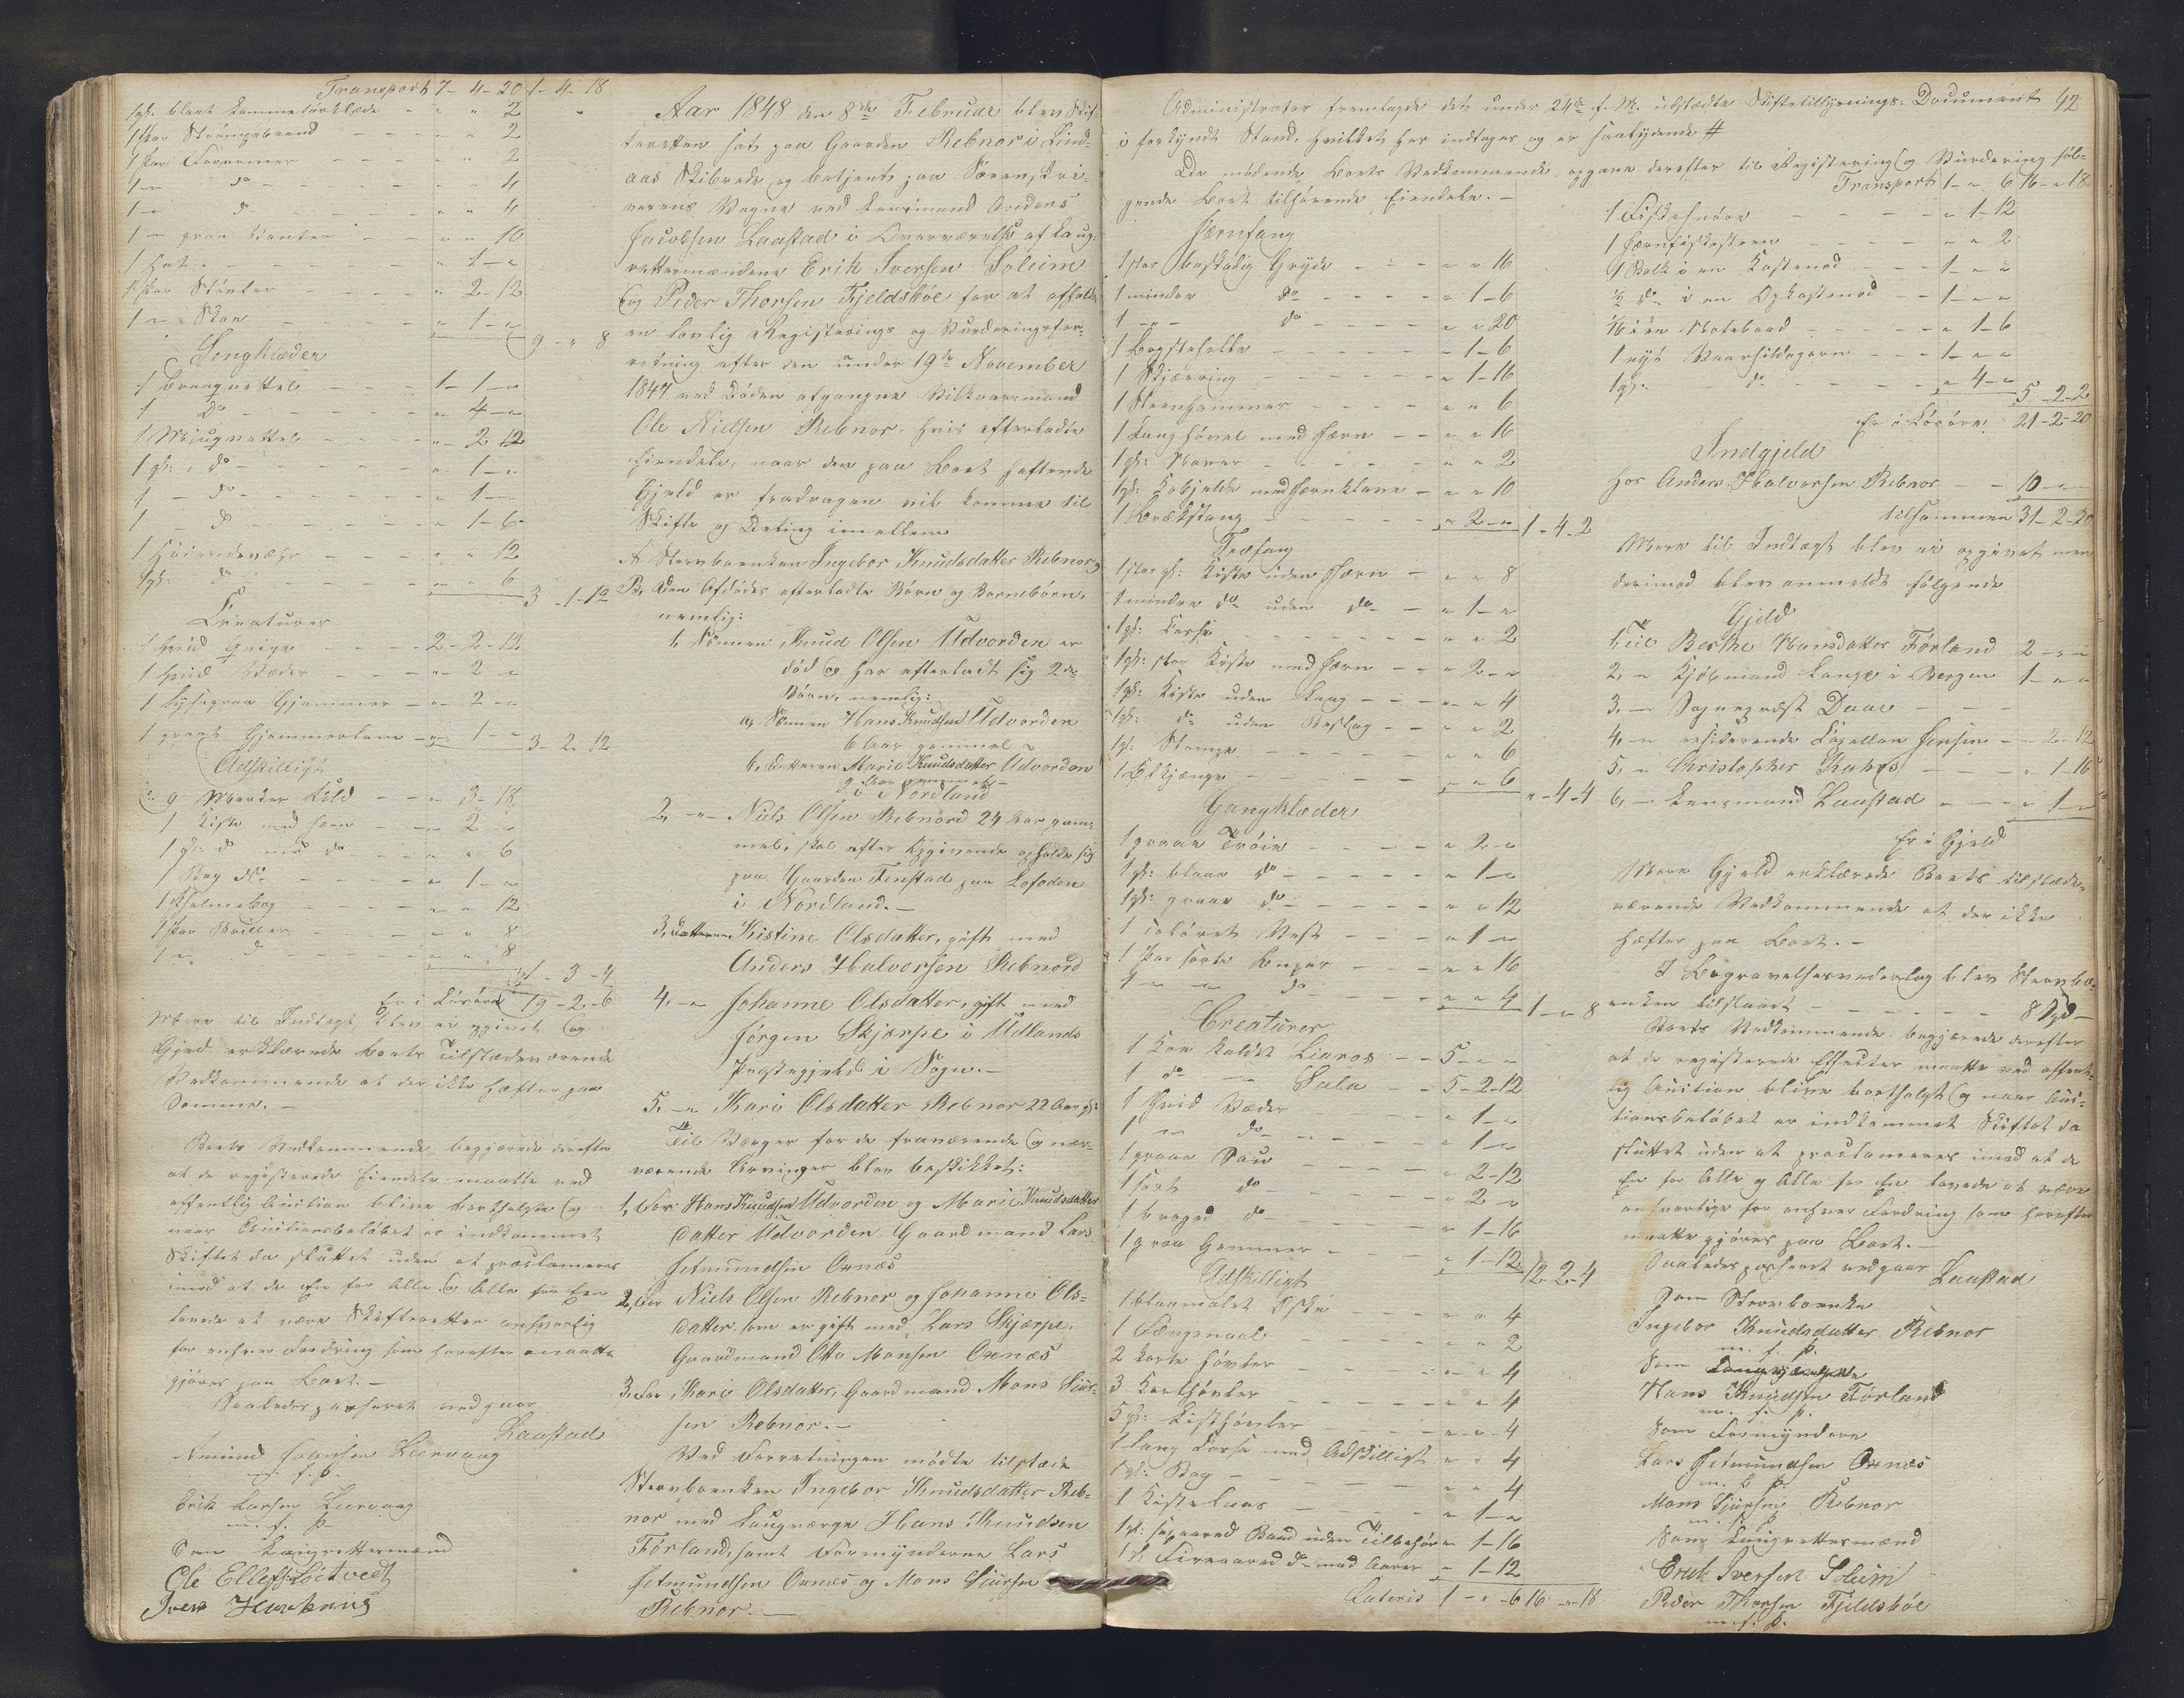 Transport 7- 4- 20 1- 4- 18
1 gl: blaat Kammelotsklæde - " " 2
1 Par Strømpebaand " " 2
1 Par Forermer " " 2
1 " do " " 4
1 " do " " 4
1 " graa Vanter " " 10
1 Hat " 1 - "
1 Par Støvler " 2-12
1 " Skoe " 1 - " 9 - " 8
Sengklæder
1 1 - 1 - "
1 do " 4 - "
1 " 2 12
1 gl: do " 1 - "
1 - do " 1 -
1 - do " 1-6-
1 " " 12
1 gl: do " " 6 3 -1-12
Creaturer
1 hvid Qvige 2-2-12
1 hvid Væder " 2 "
1 lysegraa Gjemmer " 2 -
1 graat Gjemmerlam " 1 - " 3-2-12
Adskilligt
9 Marker Uld " 3-18
1 Kiste med Jern " 2 "
1 gl: do med do " " 6
1 Bog do " 1 - "
1 Psalmebog " " 12
1 Par Briller " " 8
1 " do " " 8 1 - 3 - 4
Er i Løsøre 19-2-6
Mere til Indtægt blev ei opgivet og
Gjeld erklærede Boets Tilstedeværende
Vedkommende at der ikke hæfter paa
Samme.-
Boets Vedkommende begjærede derefter
at de registerede Eiendele maatte ved
offentlig Auction blive bortsolgte og
naar Auctionsbeløbet er indkommet
Skiftet da sluttet uden at proclameres
imod at de En for Alle og Alle for Een
lovede at være Skifteretten ansvarlig
for enhver Fordring som herefter maatte
gjøres paa Boet.-
Saaledes passeret vedgaar
Laastad
Amund Leervaag
m. f. P.
Erik Larsen Leervaag
m. f. P.
Som Laugrettesmænd
Ole Ellefs:
Iver
Aar 1848 den 8de Februar blev Skif-
teretten sat paa Gaarden Rebnor i Lind-
aas Skibrede og betjent paa Sørenskri-
verens Vegne ved Lensmand Anders
Jacobsen Laastad i Overværelse af Laug-
rettesmændene Erik Iversen Soleim
og Peder Thorsen Fjeldsbøe for at afholde
en lovlig Registerings og Vurderingsfor-
retning efter den under 19de November
1847 ved Døden afgangne Vilkaarsmand
Ole Nielsen Rebnor, hvis efterladte
Eiendele, naar den paa Boet heftende
Gjeld er fradragen vil komme til
Skifte og Deling imellem
A. Stervboenken Ingebor Knudsdatter Rebnor og
B. Den Afdødes efterladte Børn og Børnebørn,
nemlig:
1, Sønnen Knud Olsen Udvorden er
død og har efterladt sig 2de
Børn, nemlig:
a, Sønnen Hans Knudsen Udvorden
6 Aar gammel
b, Datteren Marie Knudsdatter Udvorden
9 Aar gammel
i Nordland
2, - " - Niels Olsen Rebnord 24 Aar gam-
mel, skal efter Opgivende opholde sig
paa Gaarden Tenstad paa Lofoden
i Nordland.-
3, Datteren Kistine Olsdatter, gift med
Anders Halvorsen Rebnord
4, - " Johanne Olsdatter, gift med
Jørgen Skjærpe i Utlands
Præstegjeld i Sogn.-
5, - " Kari Olsdatter Rebnor 22 Aar gl:
Til Værger for de fraværende og nær-
værende Arvinger blev beskikket:
1, For Hans Knudsen Udvorden og Marie Knudsdatter
datter Udvorden Gaardmand Lars
Jetmundsen Oxnæs
2, For Niels Olsen Rebnor og Johanne Ols-
datter, som er gift med Lars Skjærpe,
Gaardmand Otto Monsen Oxnæs
3, For Kari Olsdatter, Gaardmand Mons Siur-
sen Rebnor.-
Ved Forretningen mødte tilstede
Stervboenken Ingebor Knudsdatter Reb-
nor med Laugværge Hans Knudsen
Førland, samt Formynderne Lars
Jetmundsen Oxnæs og Mons Siursen
Rebnor.-
Administrator fremlagde det under 24de f. M. udstædte Skiftetillysnings-Document 42
i forkyndt Stand, hvilket her indtages og er saalydende #
De mødende Boets Vedkommende opgave derefter til Registering og Vurdering føl-
gende Boet tilhørende Eiendele.-
Jernfang
1 stor beskadig Gryde " " 16
1 mindre do " 1-6
1 - " - do " " 20
1 Bagstehelle - 1-6
1 Skjæring " 1-16
1 Steenhammer " " 6
1 Langhøvel med Jern " " 16
1 gl: Naver " " 2
1 gl: Kobjelde med Jernklave " " 10
1 Brækstang " 2 - " 1-4-2
Træfang
1 stor gl: Kiste uden Jern " " 8
1 mindre do uden do " 1 - "
1 gl: " " 2
1 gl: stor Kiste med Jern " 2 - "
1 gl: Kiste uden Laag " " 4
1 gl: do uden Beslag " " 2
1 gl: Stampe " " 6
1 " " 6 " -4-4
Gangklæder
1 graae Trøie " 2 - "
1 gl: blaae do " 1 - "
1 gl: graae do " " 12
1 couløret Vest " 1 -
1 Par sorte Buxer " " 16
1 - " do " " 4 1 - " 8
Creaturer
1 Koe kaldet Liaros 5 - " -
1 do - Sala 5-2-12
1 hvid Væder " 1 - "
1 - do " 1 - "
1 graae Sau " 2-12
1 sort do " 2 - "
1 broged do " 1-16
1 graa Gemmer " 1-12 12-2-4
Adskilligt
1 blaamalet Æske " " 4
1 Længenaal " " 2
2 korte Høvler " " 4
3 " " 4
5 gl: " " 4
1 lang med Adskilligt " " 4
1 gl: Bog " " 4
1 Kistelaas " 1 - "
1 gl: Baad uden Tilbehør " 1-16
1 gl Fireaared do med Aarer " 1-12
Lateris 1 - " - 6 16 - " 18
Transport 1 - " 6 16 - " 18
1 Fiskesnøre " 1-12
1 Jernfiskesteen " " 2
1 Bolk i en Kastenod 1 - " "
½ do i en Opkastnod 1 - " "
1/6 i en Notebaad " 1-6
1 nyt Vaarsildegarn 1 - " "
1 gl: do " 4 - " 5-2-2
Er i Løsøre 21-2-20
Indgjeld
hos Anders Halvorsen Rebnor 10 - "
tilsammen 31-2-20
Mere til Indtægt blev ei opgivet men
derimod blev anmeldt følgende
Gjeld
1, til Berthe Hansdatter Førland 2 - " "
2, " Kjøbmand Lange i Bergen 1 - " "
3, - Sogneprest Daae
4, - residerende Capellan Jensen " 2-12
5, " Christopher " 1-16
6, - Lensmand Laastad " 1 - "
Er i Gjeld
Mere Gjeld erklærede Boets tilstede-
værende Vedkommende at der ikke
hæfter paa Boet.-
I Begravelsesvederlag blev Stervbo-
enken tilstaaet 8 Spd -
Boets Vedkommende begjærede derefter
at de registerede Effecter maatte ved offent-
lig Auction blive bortsolgt og naar Auc-
tionsbeløbet er indkommet Skiftet da
sluttet uden at proclameres imod at de
En for Alle og Alle for En lovede at være
ansvarlige for enhver Fordring som herefter
maatte gjøres paa Boet.-
Saaledes passeret vedgaar
Laastad
Som Stervboenke
Ingebor Knudsdatter Rebnor
m. f. P.
Som Laugværge
Hans Knudsen Førland
m. f. P.
Som Formyndere
Lars Jetmundsen Oxnæs
m. f. P.
Mons Siursen Rebnor
m. f. P.
Som Laugrettesmænd
Erik Iversen Soleim
Peder Thorsen Fjeldsbøe
m. f. P.